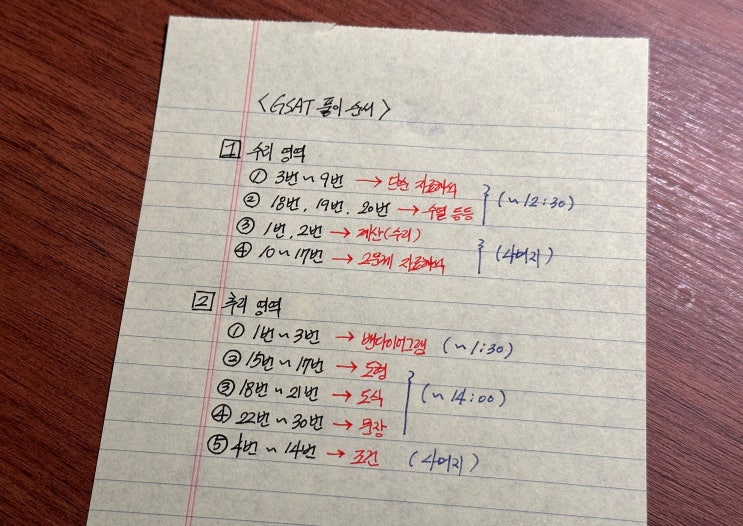 <GSAT 풀이 순서>
1 수리 영역
① 3번~9번 → 단순 자료해석
② 18번, 19번, 20번 → 수열 등등 (~12:30)
③ 1번, 2번 → 계산(수리)
④ 10~17번 → 2문제 자료해석 (나머지)
2 추리 영역
① 1번~3번 → 벤다이어그램 (~1:30)
② 15번~17번 → 도형
③ 18번~21번 → 도식 (~14:00)
④ 22번~30번 → 문장
⑤ 4번~14번 → 조건 (나머지)